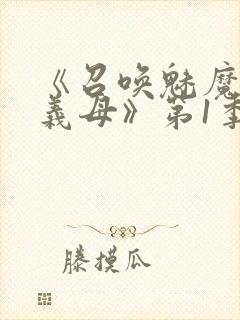 《召唤魅魔
義母》第1季
滕摸瓜